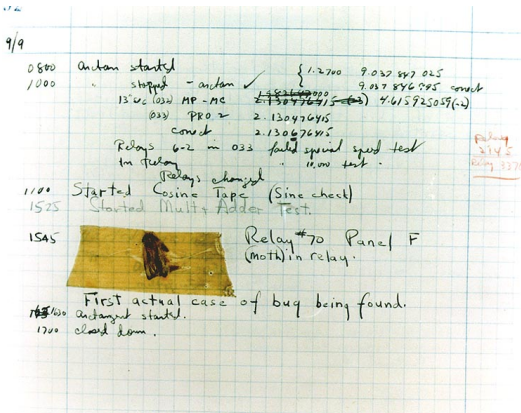 9/9
0800 Antan started
1000 " stopped - antan ✓ { 1.2700 9.037 847 025
9.037 846 995 conect
13"uc (032) MP - MC 2.130476415 (-3) 4.615925059(-2)
(033) PRO 2 2.130476415
conect 2.130676415
Relays 6-2 in 033 failed special speed test
in relay " 10,000 test.
Relays changed
Relay
2145
Relay 3370
1100 Started Cosine Tape (Sine check)
1525 Started Mult + Adder Test.
1545 Relay #70 Panel F
(moth) in relay.
First actual case of bug being found.
1630 antangent started.
1700 closed down.